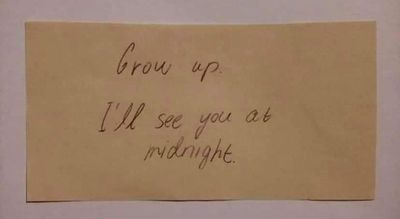 Grow up.
I'll see you at
midnight.